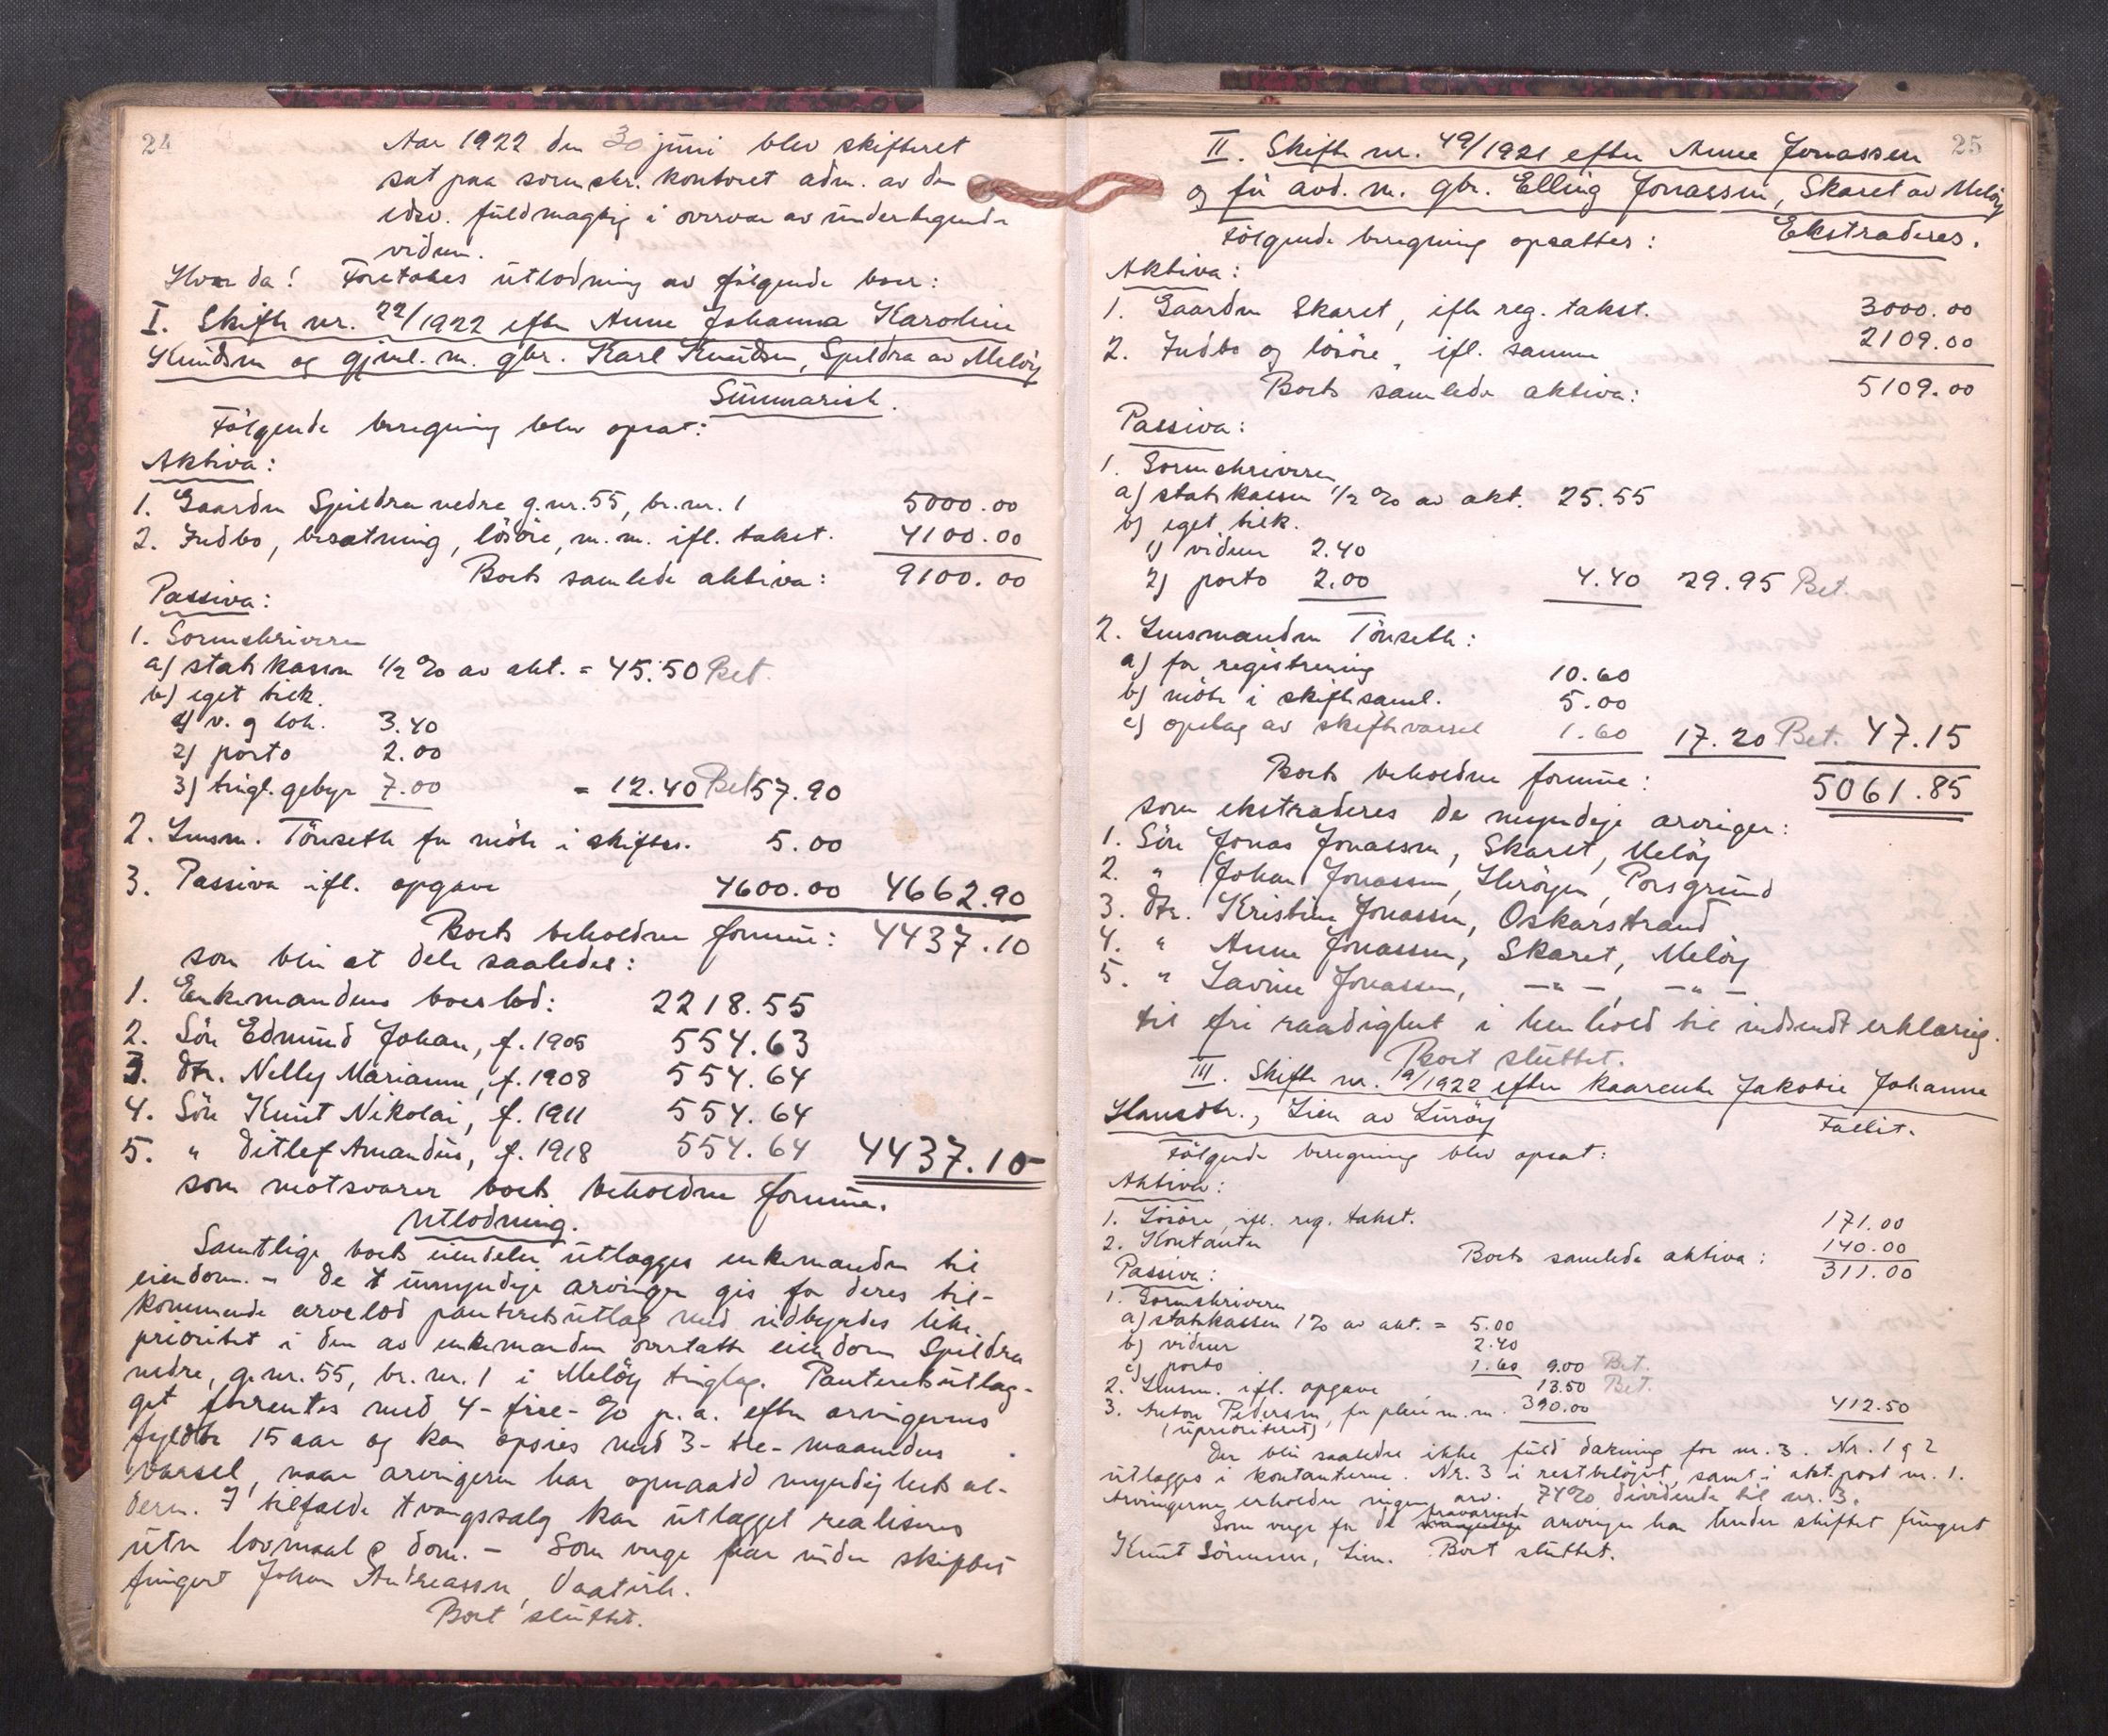 24
Aar 1922 den 30 juni blev skifteret
sat paa sorenskr. kontoret adm. av den
edsv. fuldmægtig i overvær av undertegnede
vidner.
Hvor da! Foretokes utlodning av følgende boer:
I. Skifte nr. 22/1922 efter Anne Johanna Karoline
Knudsen og gjenl. m. gbr. Karl Knudsen, Spildra av Meløy
Summarisk.
Følgende beregning blev opsat:
Aktiva:
1. Gaarden Spildra nedre g.nr. 55, br.nr. 1 5000.00
2. Indbo, besætning, løsøre, m.m. ifl. takst. 4100.00
Boets samlede aktiva: 9100.00
Passiva:
1. Sorenskriveren
a) statskassen 1/2 % av akt. = 45.50 Bet.
b) eget tilk.
1) v. og lok. 3.40
2) porto 2.00
3) tingl. gebyr 7.00 = 12.40 Bet 57.90
2. Lensm. Tönseth for møte i skiftes. 5.00
3. Passiva ifl. opgave 4600.00 4662.90
Boets beholdne formue: 4437.10
som blir at dele saaledes:
1. Enkemandens boeslod: 2218.55
2. Søn Edmund Johan, f. 1905 554.63
3. Dtr. Nelly Marianne, f. 1908 554.64
4. Søn Knut Nikolai, f. 1911 554.64
5. " Ditlef Amandus, f. 1918 554.64 4437.10
som motsvarer boets beholdne formue.
Utlodning.
Samtlige boets eiendeler utlægges enkemanden til
eiendom. - De 4 umyndige arvinger gis for deres til-
kommende arvelod panteretsutlæg med indbyrdes like
prioritet i den av enkemanden overtatte eiendom Spildra
nedre, g.nr. 55, br.nr. 1 i Meløy tinglag. Panteretsutlæg-
get forrentes med 4- fire- % p.a. efter arvingernes
fyldte 15 aar og kan opsies med 3- tre- maaneders
varsel, naar arvingeren har opnaadd myndighets al-
deren. I tilfælde tvangssalg kan utlægget realiseres
uten lovmaal & dom. - Som verge har under skiftet
fungert Johan Andreassen, Vaatvik.
Boet sluttet.
25
II. Skifte nr. 49/1921 efter Anne Jonassen
og før avd. m. gbr. Elling Jonassen, Skaret av Meløy
Ekstraderes.
Følgende beregning opsattes:
Aktiva:
1. Gaarden Skaret, ifle reg. takst. 3000.00
2. Indbo og løsøre, ifl. samme 2109.00
Boets samlede aktiva: 5109.00
Passiva:
1. Sorenskriveren
a) statskassen 1/2 % av akt. 25.55
b) eget tilk.
1) vidner 2.40
2) porto 2.00 4.40 29.95 Bet.
2. Lensmanden Tönseth:
a) for registrering 10.60
b) møte i skiftesaml. 5.00
c) opslag av skiftevarsel 1.60 17.20 Bet. 47.15
Boets beholdne formue: 5061.85
som ekstraderes de myndige arvinger:
1. Søn Jonas Jonassen, Skaret, Meløy
2. " Johan Jonassen, Herøyen, Porsgrund
3. Dtr. Kristine Jonassen, Oskarstrand
4. " Anne Jonassen, Skaret, Meløy
5. " Lavine Jonassen, -"-, -"-
til fri raadighet i henhold til indsendt erklæring.
Boet sluttet.
III. Skifte nr. 19/1922 efter kaarenke Jakobie Johanne
Hansdtr., Lien av Lurøy
Fallit.
Følgende beregning blev opsat:
Aktiva:
1. Løsøre, ifl. reg. takst. 171.00
2. Kontanter 140.00
Boets samlede aktiva: 311.00
Passiva:
1. Sorenskriveren
a) statskassen 1% av akt. = 5.00
b) vidner 2.40
c) porto 1.60 9.00 Bet.
2. Lensm. ifl. opgave 13.50 Bet.
3. Anton Pedersen, for pleie m.m. 390.00 412.50
(uprioritert)
Der blir saaledes ikke fuld dækning for nr. 3. Nr. 1 og 2
utlægges i kontanterne. Nr. 3 i restbeløpet, samt i akt. post nr. 1.
Arvingerne erholder ingen arv. 74% dividende til nr. 3.
Som verge for de fraværende arvinger har under skiftet fungert
Knut Sörensen, Lien. Boet sluttet.